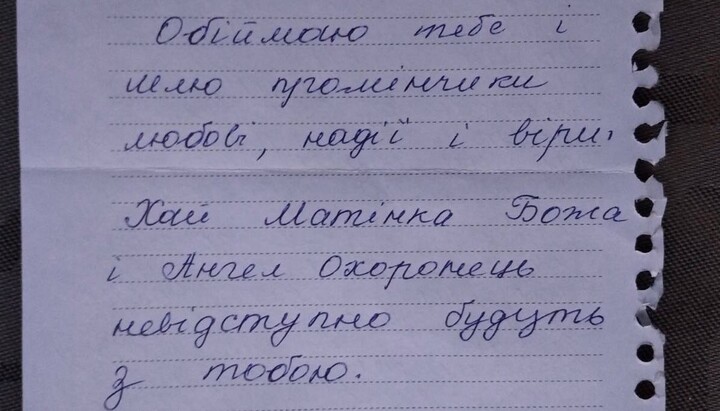 Обіймаю тебе і
шлю промінчики
любові, надії і віри.
Хай Матінка Божа
і Ангел Охоронець
невідступно будуть
з тобою.